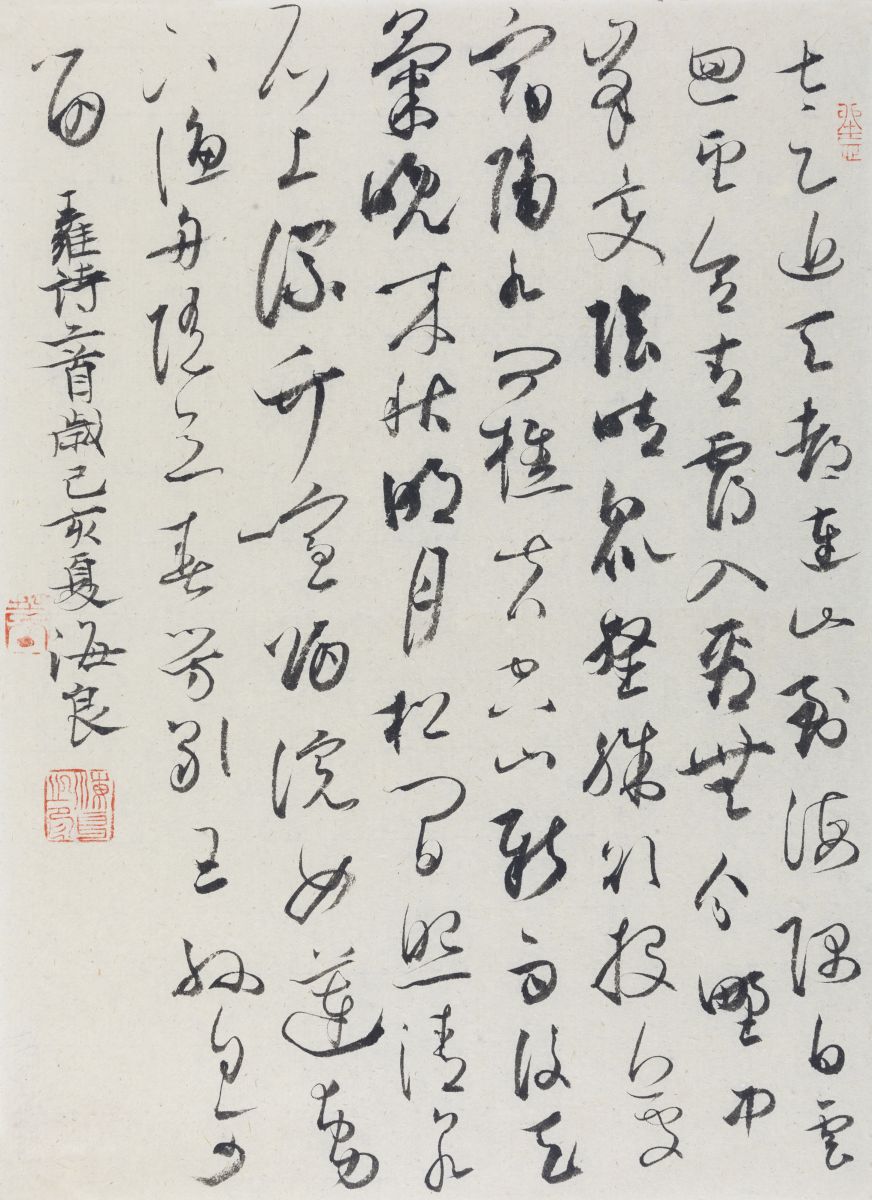 太乙近天都連山到海隅白雲
回望合青靄入看無分野中
峯變陰晴眾壑殊欲投人處
宿隔水問樵夫空山新雨後天
氣晚來秋明月松間照清泉
石上流竹喧歸浣女蓮動
下漁舟隨意春芳歇王孫自可
留
王維詩二首歲己亥夏海良